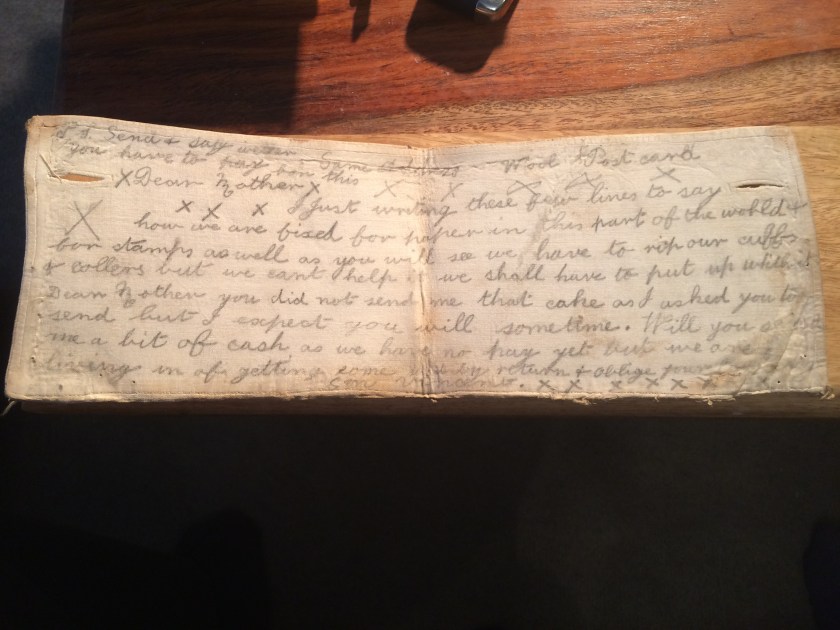 P.S. Send & say wether
you have to pay on this
Same address Wool Post card
X Dear Mother X X X X X X
X X X X I Just writing these few lines to say
how we are fixed for paper in this part of the world &
for stamps as well as you will see we have to rip our cuffs
& collers but we cant help it we shall have to put up with it
Dear Mother you did not send me that cake as I asked you to
send but I expect you will sometime. Will you
me a bit of cash as we have no pay yet but we are
living in of getting some return & oblige your
X X X X X X